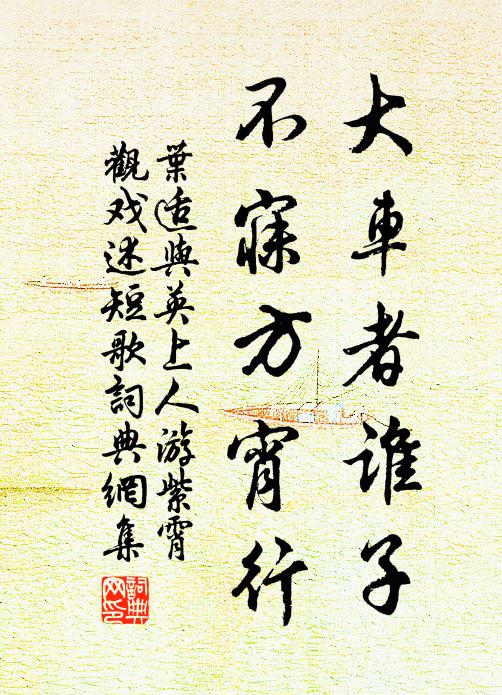 大車者誰子
不寐方宵行
葉适與英上人游紫霄
觀戏述短歌詞典網集
詞典